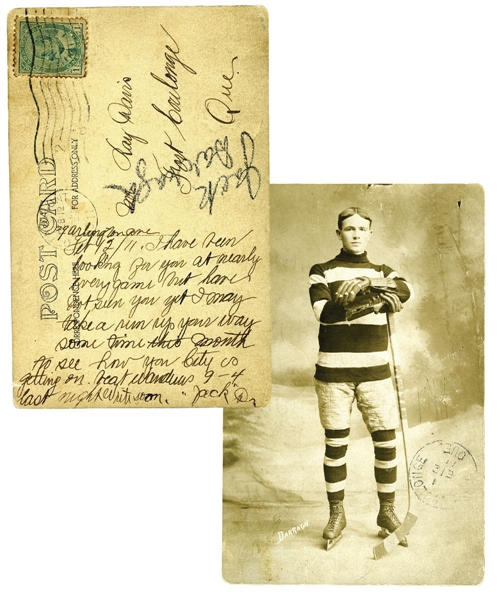 POST CARD
FOR ADDRESS ONLY
Ray Davis
Fort Coulonge
Que.
Jack
Feb 12/11. I have been
looking for you at nearly
every game but have
not seen you yet I may
take a run up your way
some time this month
to see how you City is
getting on. Beat Wanderers 9-4
last night. Write soon. "Jack D.
DARRAGH
QUE